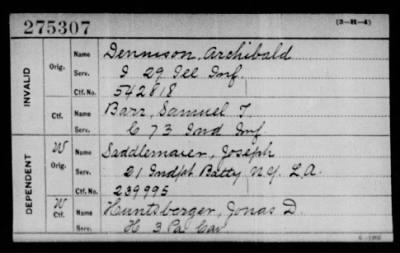 275307
(3-H-4)
INVALID
Orig.
Name Dennison, Archibald
Serv. I 29 Ill Inf.
Ctf. No. 542818
Ctf.
Name Barr, Samuel T.
Serv. C 73 Ind Inf
DEPENDENT
W Orig.
Name Saddlemaier, Joseph
Serv. 21 Indpt Batty N.Y. L.A.
Ctf. No. 239995
W Ctf.
Name Huntsberger, Jonas D.
Serv. H 3 Pa Cav